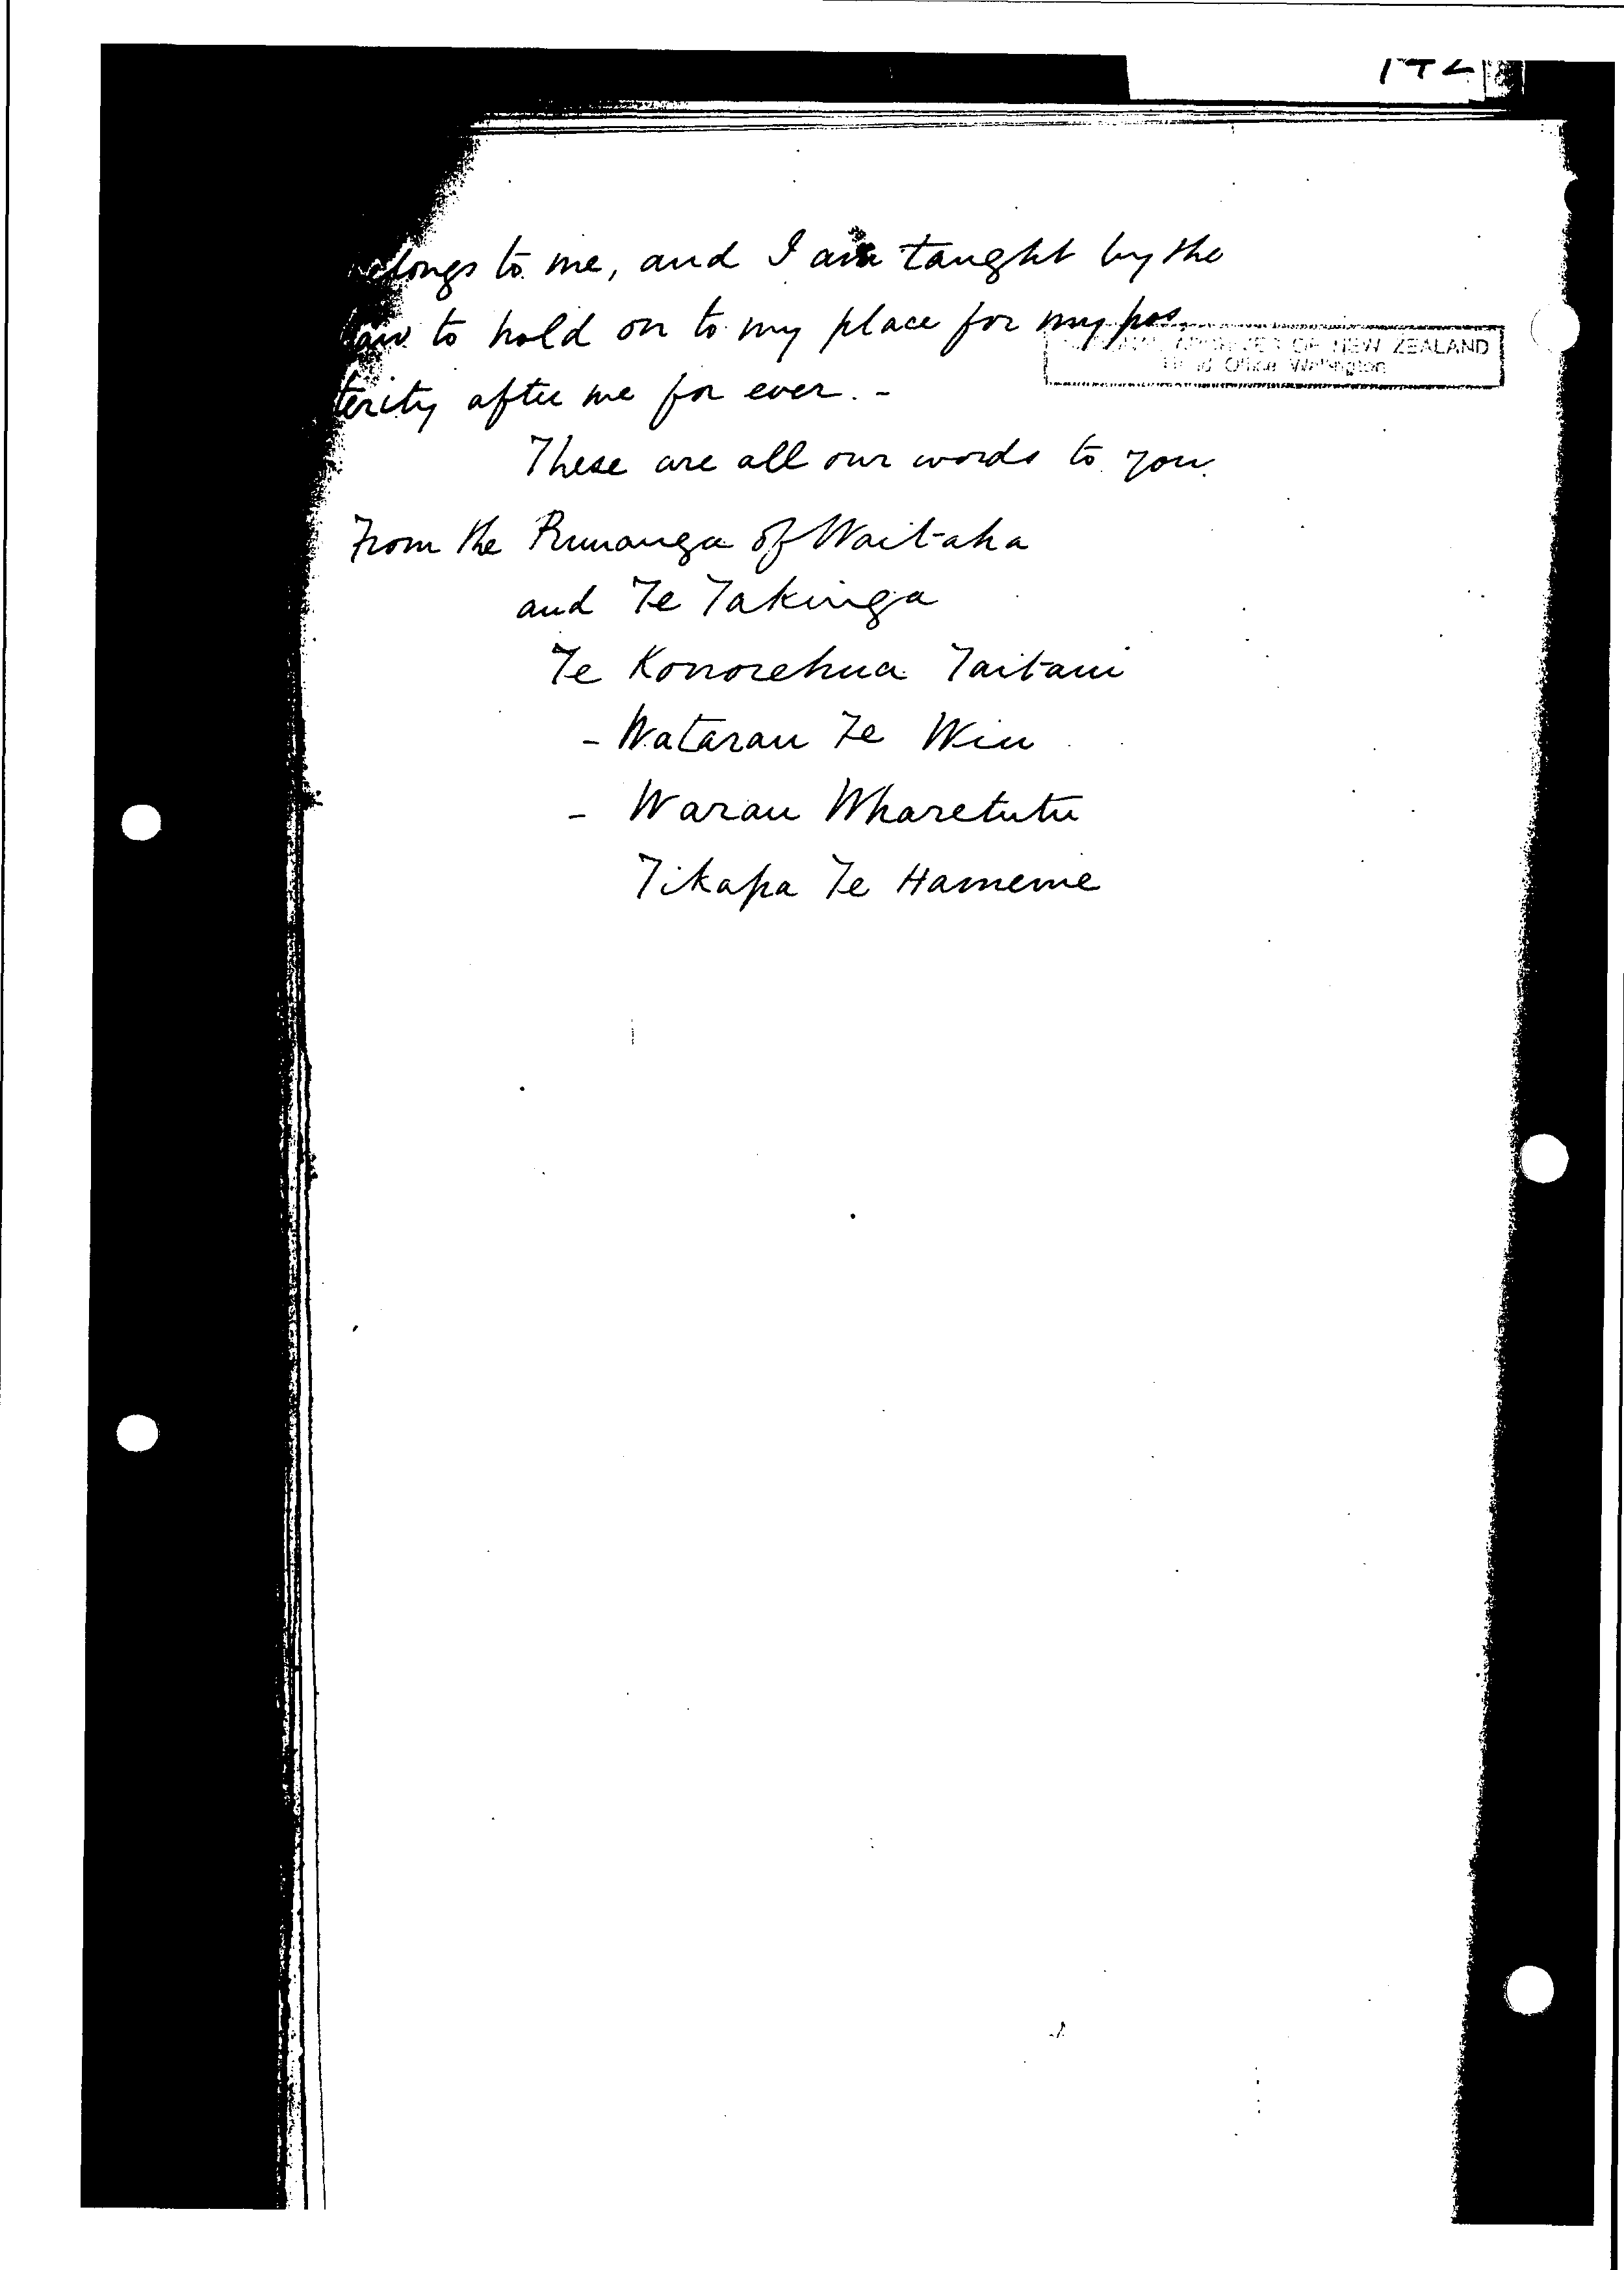 belongs to me, and I am taught by the
law to hold on to my place for my pos
NATIONAL ARCHIVES OF NEW ZEALAND
Head Office Wellington
terity after me for ever. -
These are all our words to you.
From the Runanga of Waitaha
and Te Takinga
Te Kororehua Taitaui
- Watarau Te Wiu
- Warau Wharetutu
Tikapa Te Hameme